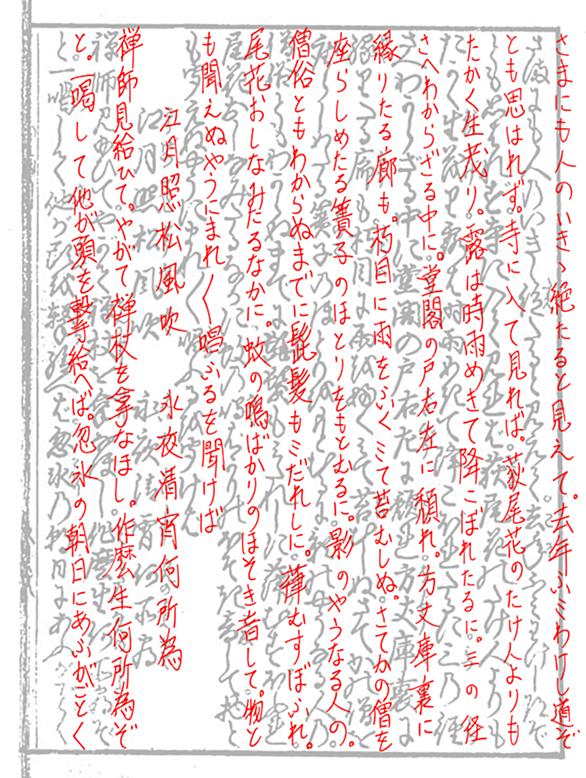 さまにも人のいきゝ絶たると見えて。去年ふミわけし道ぞ
とも思はれず。寺に入て見れば。荻尾花のたけ人よりも
たかく生茂り。露は時雨めきて降こぼれたるに。三の径
さへわからざる中に。堂閣の戸右左に頽れ。方丈庫裏に
縁りたる廊も。朽目に雨をふくミて苔むしぬ。さてかの僧を
座らしめたる簀子のほとりをもとむるに。影のやうなる人の。
僧俗ともわからぬまでに髭髪もミだれしに。葎むすぼふれ。
尾花おしなみたるなかに。蚊の鳴ばかりのほそき音して。物と
も聞えぬやうにまれ〳〵唱ふるを聞けば
江月照松風吹　永夜清宵何所為
禅師見給ひて。やがて禅杖を拿なほし。作麼生何所為ぞ
と。一喝して他が頭を撃給へば。忽氷の朝日にあふがごとく